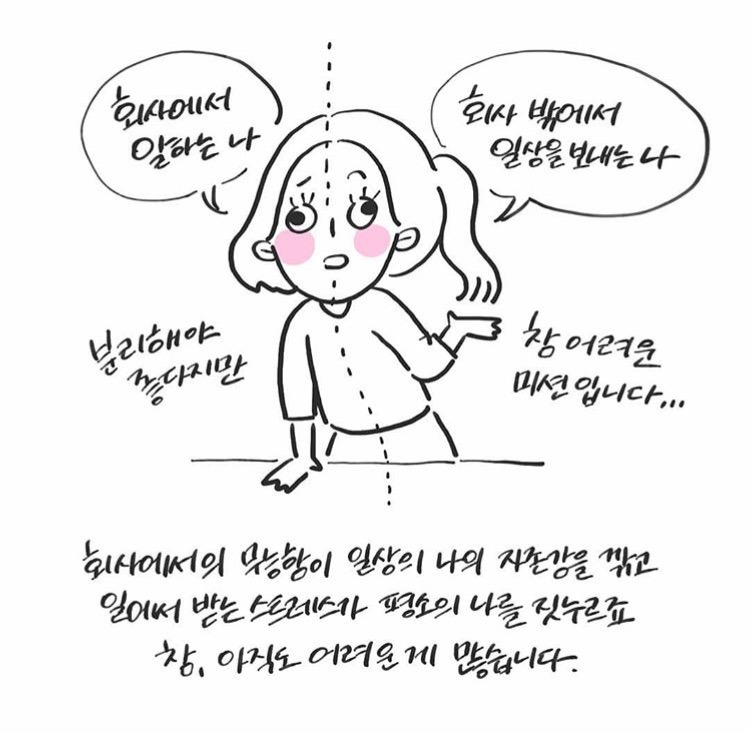 회사에서
일하는 나
회사 밖에서
일상을 보내는 나
분리해야
좋다지만
참 어려운
미션입니다...
회사에서의 무능함이 일상의 나의 자존감을 깎고
일에서 받는 스트레스가 평소의 나를 짓누르죠
참, 아직도 어려운 게 많습니다.